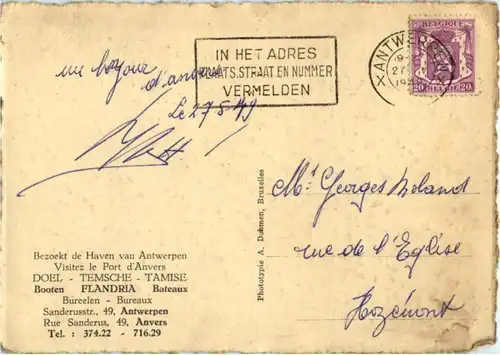 IN HET ADRES
PLAATS, STRAAT EN NUMMER
VERMELDEN
ANTWERPEN
BELGIQUE
20 BELGIE 20
un bonjour
d'anvers
Le 27-8-49
Phototypie A. Dohmen, Bruxelles
Mr Georges Noland
rue de l'Eglise
Hozémont
Bezoekt de Haven van Antwerpen
Visitez le Port d'Anvers
DOEL - TEMSCHE - TAMISE
Booten FLANDRIA Bateaux
Büreelen - Bureaux
Sanderusstr., 49, Antwerpen
Rue Sanderus, 49, Anvers
Tel. : 374.22 - 716.29